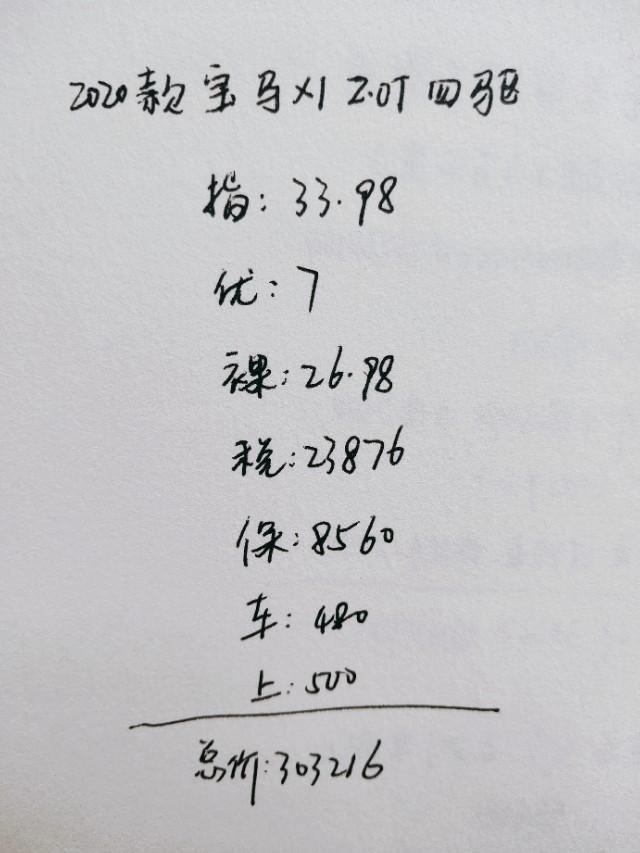 2020款宝马X1 2.0T四驱
指:33.98
优:7
裸:26.98
税:23876
保:8560
车:480
上:500
总价:303216